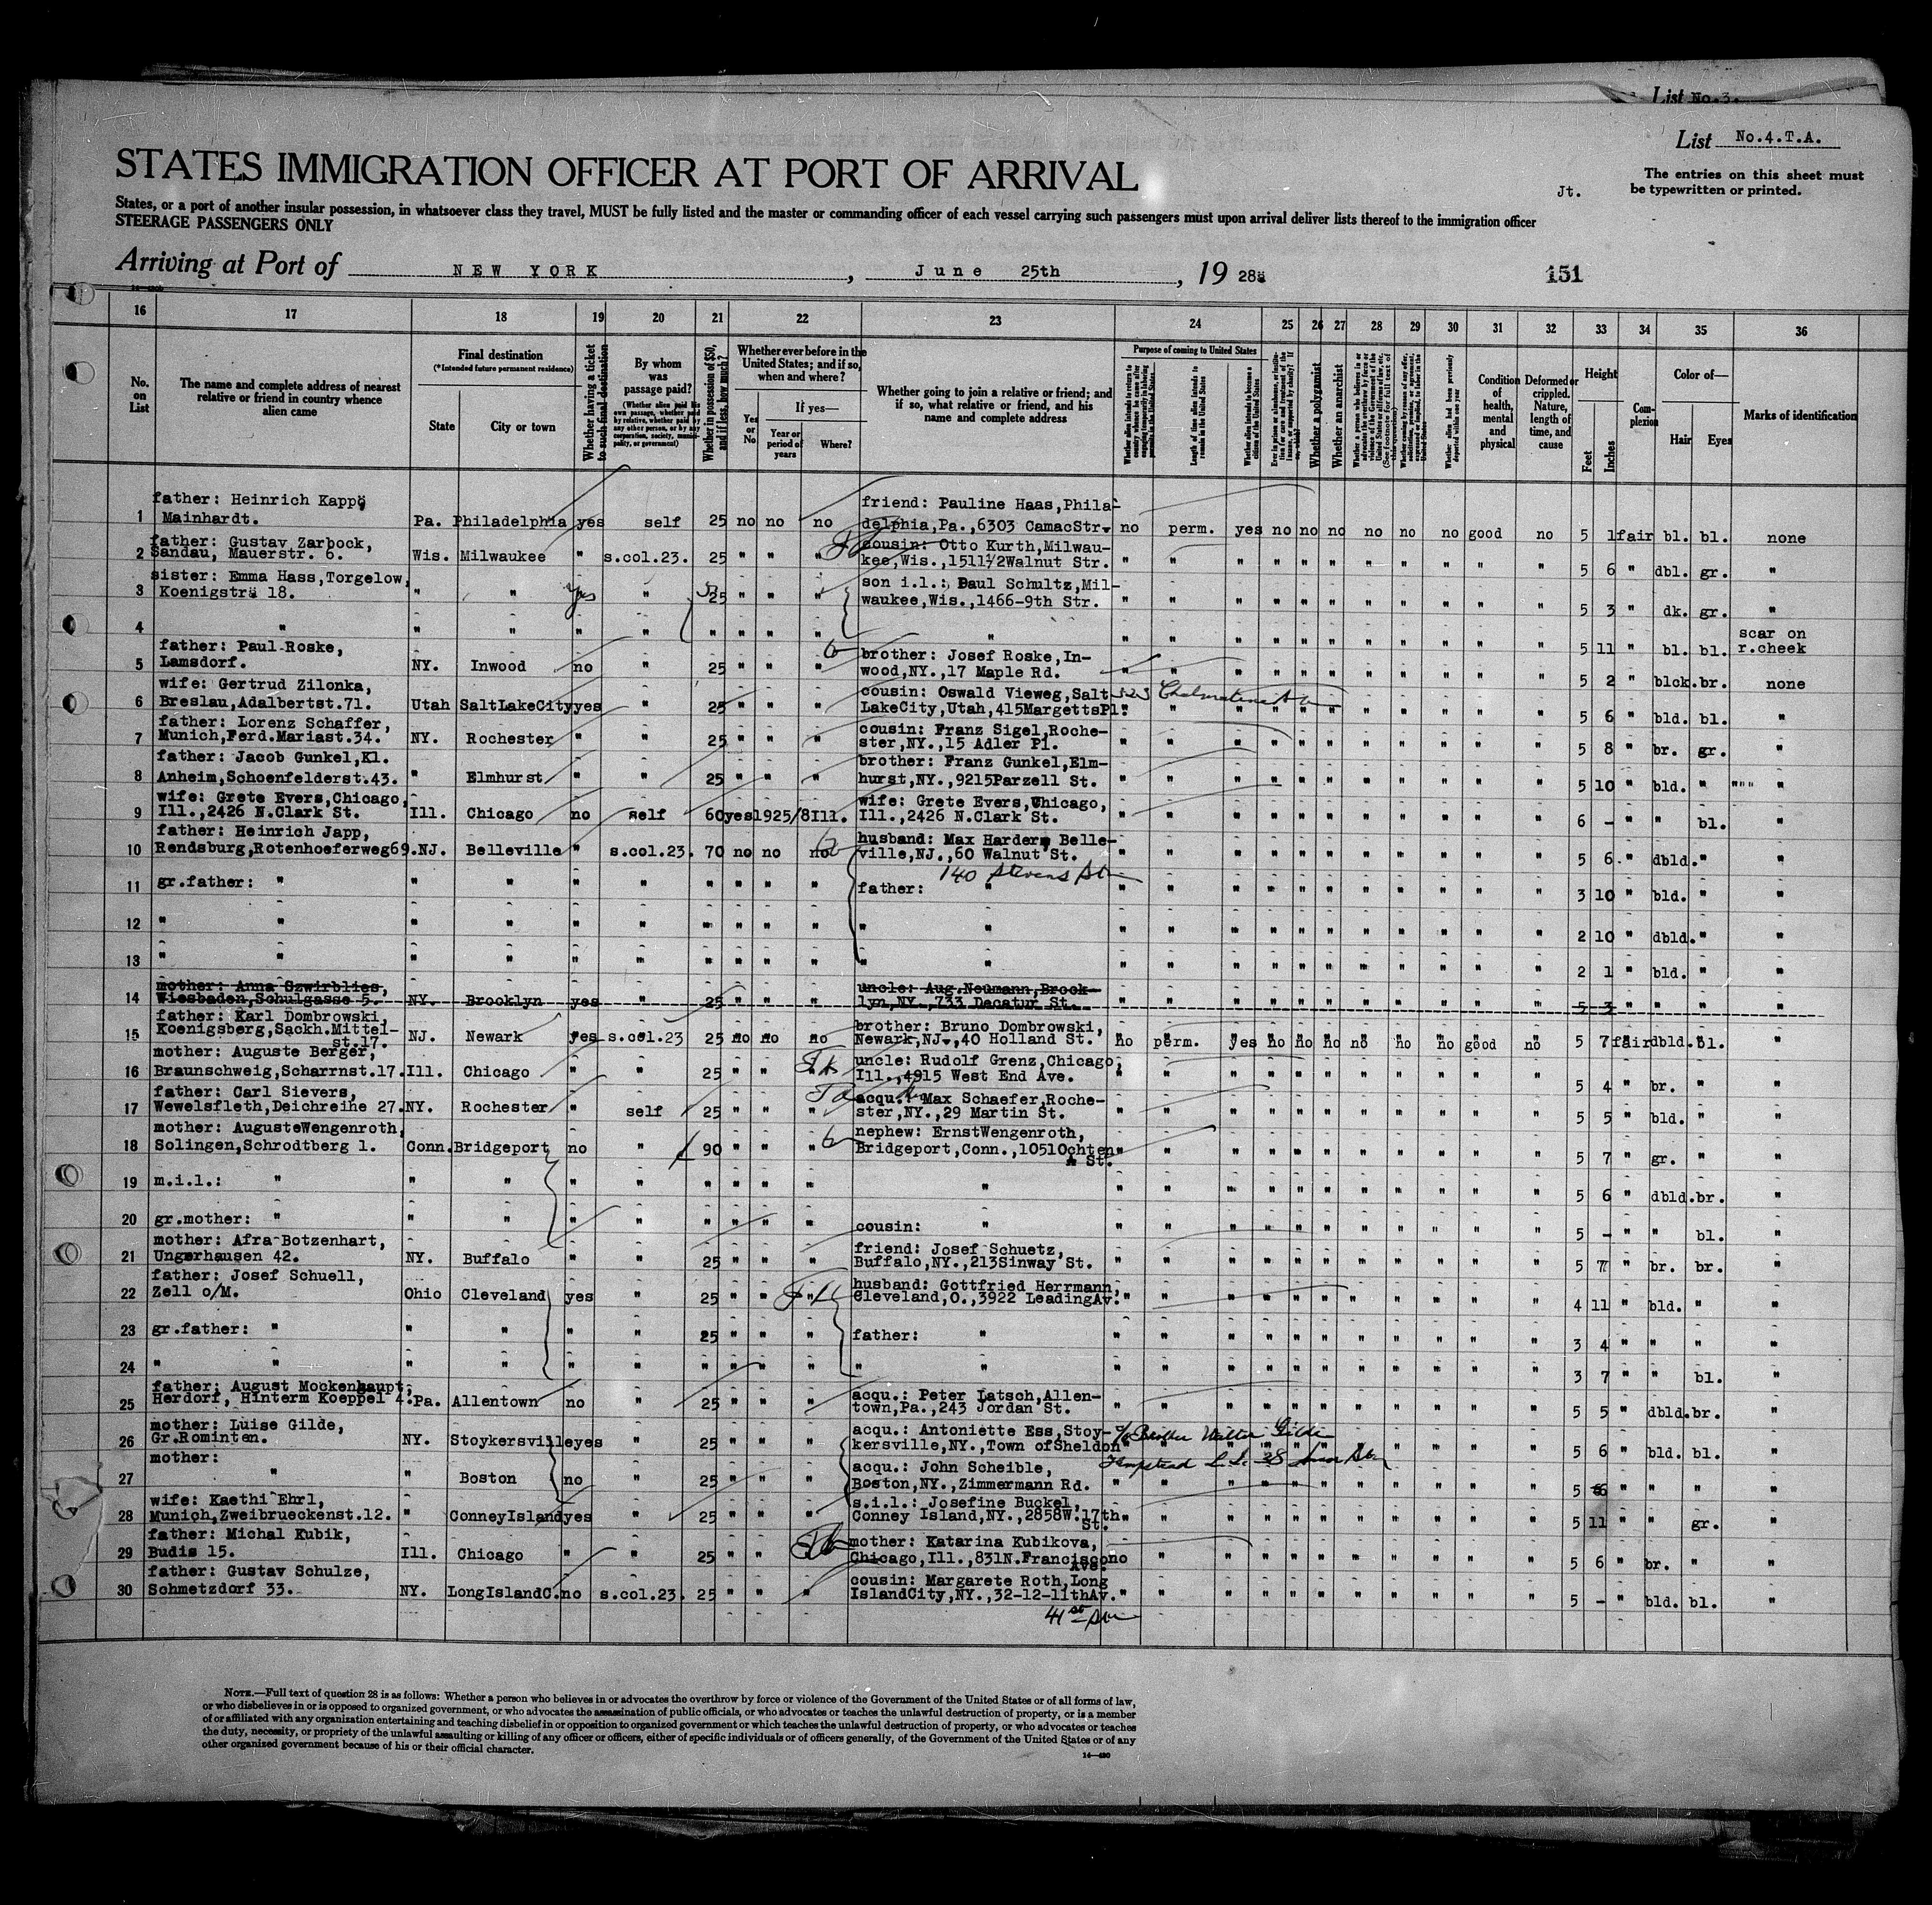 List No.3.
List No.4.T.A.
STATES IMMIGRATION OFFICER AT PORT OF ARRIVAL
The entries on this sheet must
be typewritten or printed.
Jt.
States, or a port of another insular possession, in whatsoever class they travel, MUST be fully listed and the master or commanding officer of each vessel carrying such passengers must upon arrival deliver lists thereof to the immigration officer
STEERAGE PASSENGERS ONLY
Arriving at Port of NEW YORK, June 25th, 19 28
151
16 17 18 19 20 21 22 23 24 25 26 27 28 29 30 31 32 33 34 35 36
No. on List
The name and complete address of nearest relative or friend in country whence alien came
Final destination
(*Intended future permanent residence)
State
City or town
Whether having a ticket to such final destination
By whom was passage paid?
(Whether alien paid his own passage, whether paid by relative, whether paid by any other person, or by any corporation, society, municipality, or government)
Whether in possession of $50, and if less, how much?
Whether ever before in the United States; and if so, when and where?
Yes or No
If yes—
Year or period of years
Where?
Whether going to join a relative or friend; and if so, what relative or friend, and his name and complete address
Purpose of coming to United States
Length of time alien intends to remain in the United States
Whether a polygamist
Whether an anarchist
Condition of health, mental and physical
Deformed or crippled. Nature, length of time, and cause
Height
Feet
Inches
Complexion
Color of—
Hair
Eyes
Marks of identification
1 father: Heinrich Kapp Mainhardt. Pa. Philadelphia yes self 25 no no no friend: Pauline Haas,Phila-
delphia,Pa.,6303 CamacStr. no perm. yes no no no no no no good no 5 1 fair bl. bl. none
2 father: Gustav Zarbock, Sandau, Mauerstr. 6. Wis. Milwaukee " s.col.23. 25 " " " cousin: Otto Kurth,Milwau-
kee,Wis.,1511½Walnut Str. 5 6 " dbl. gr. "
3 sister: Emma Hass,Torgelow, Koenigstr 18. " " yes " 25 " " " son i.l.: Paul Schultz,Mil-
waukee,Wis.,1466-9th Str. 5 3 " dk. gr. "
4 " " " " " " " " " " 5 11 " bl. bl. scar on r.cheek
5 father: Paul Roske, Lamsdorf. NY. Inwood no " 25 " " " brother: Josef Roske,In-
wood,NY.,17 Maple Rd. 5 2 " blck. br. none
6 wife: Gertrud Zilonka, Breslau,Adalbertst.71. Utah SaltLakeCity yes " 25 " " " cousin: Oswald Vieweg,Salt
LakeCity,Utah,415MargettsPl. 5 6 " bld. bl. "
7 father: Lorenz Schaffer, Munich,Ferd.Mariast.34. NY. Rochester " " 25 " " " cousin: Franz Sigel,Roche-
ster,NY.,15 Adler Pl. 5 8 " br. gr. "
8 father: Jacob Gunkel,Kl. Anheim,Schoenfelderst.43. " Elmhurst " " 25 " " " brother: Franz Gunkel,Elm-
hurst,NY.,9215Parzell St. 5 10 " bld. " "
9 wife: Grete Evers,Chicago, Ill.,2426 N.Clark St. Ill. Chicago no self 60 yes 1925/8 Ill. wife: Grete Evers,Chicago,
Ill.,2426 N.Clark St. 6 - " " bl. "
10 father: Heinrich Japp, Rendsburg,Rotenhoeferweg69. NJ. Belleville " s.col.23. 70 no no no husband: Max Harder, Belle-
ville,NJ.,60 Walnut St. 5 6 " dbld. " "
140 Stevens St
11 gr.father: " " " " " " " " " father: " 3 10 " bld. " "
12 " " " " " " " " " " " " 2 10 " dbld. " "
13 " " " " " " " " " " " " 2 1 " bld. " "
14 mother: Anna Szwirblies, Wiesbaden,Schulgasse 5. NY. Brooklyn yes " 25 " " " uncle: Aug.Neumann,Brook-
lyn,NY.,733 Decatur St. 5 3
15 father: Karl Dombrowski, Koenigsberg,Sackh.Mittel-
st.17. NJ. Newark yes s.col.23 25 no no no brother: Bruno Dombrowski,
Newark,NJ.,40 Holland St. no perm. yes no no no no no no good no 5 7 fair dbld. bl. "
16 mother: Auguste Berger, Braunschweig,Scharrnst.17. Ill. Chicago " " 25 " " " uncle: Rudolf Grenz,Chicago,
Ill.,4915 West End Ave. 5 4 " br. " "
17 father: Carl Sievers, Wewelsfleth,Deichreihe 27. NY. Rochester " self 25 " " " acqu.: Max Schaefer,Roche-
ster,NY.,29 Martin St. 5 5 " bld. " "
18 mother: AugusteWengenroth, Solingen,Schrodtberg 1. Conn. Bridgeport no " 90 " " " nephew: ErnstWengenroth,
Bridgeport,Conn.,1051Ochten
St. 5 7 " gr. " "
19 m.i.l.: " " " " " " " " " " 5 6 " dbld. br. "
20 gr.mother: " " " " " " " " " cousin: " 5 - " " bl. "
21 mother: Afra Botzenhart, Ungerhausen 42. NY. Buffalo " " 25 " " " friend: Josef Schuetz,
Buffalo,NY.,213Sinway St. 5 7 " br. br. "
22 father: Josef Schuell, Zell o/M. Ohio Cleveland yes " 25 " " " husband: Gottfried Herrmann,
Cleveland,O.,3922 LeadingAv. 4 11 " bld. " "
23 gr.father: " " " " " 25 " " " father: " 3 4 " " " "
24 " " " " " " " " " " " " 3 7 " " bl. "
25 father: August Mockenhaupt, Herdorf, Hinterm Koeppel 4. Pa. Allentown no " 25 " " " acqu.: Peter Latsch,Allen-
town,Pa.,243 Jordan St. 5 5 " dbld. br. "
26 mother: Luise Gilde, Gr.Rominten. NY. Stoykersville yes " 25 " " " acqu.: Antoniette Ess,Stoy-
kersville,NY.,Town ofSheldon 5 6 " bld. bl. "
c/o Brother Walter Gilde
Hempstead L.I. 38
27 mother: " " Boston no " 25 " " " acqu.: John Scheible,
Boston,NY.,Zimmermann Rd. 5 6 " " " "
28 wife: Kaethi Ehrl, Munich,Zweibrueckenst.12. " ConneyIsland yes " 25 " " " s.i.l.: Josefine Buckel,
Conney Island,NY.,2858W.17th
St. 5 11 " " gr. "
29 father: Michal Kubik, Budis 15. Ill. Chicago " " 25 " " mother: Katarina Kubikova,
Chicago,Ill.,831N.Francisco
Ave. no 5 6 " br. " "
30 father: Gustav Schulze, Schmetzdorf 33. NY. LongIslandC. no s.col.23. 25 " " " cousin: Margarete Roth,Long
IslandCity,NY.,32-12-11thAv. 5 - " bld. bl. "
41st
NOTE.—Full text of question 28 is as follows: Whether a person who believes in or advocates the overthrow by force or violence of the Government of the United States or of all forms of law,
or who disbelieves in or is opposed to organized government, or who advocates the assassination of public officials, or who advocates or teaches the unlawful destruction of property, or is a member
of or affiliated with any organization entertaining and teaching disbelief in or opposition to organized government or which teaches the unlawful destruction of property, or who advocates or teaches
the duty, necessity, or propriety of the unlawful assaulting or killing of any officer or officers, either of specific individuals or of officers generally, of the Government of the United States or of any
other organized government because of his or their official character.
14—490